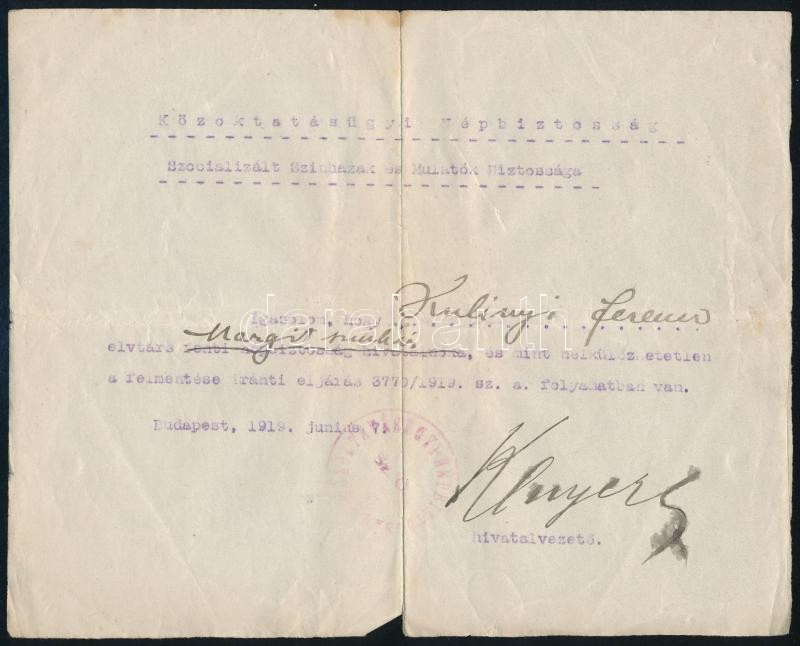 Közoktatásügyi Népbiztosság
Szocializált Szinházak és Mulatók Biztossága
Igazolom, hogy Kulinyi Ferenc
Margit
elvtárs fenti népbiztosság hivatalnoka, és mint nélkülözhetetlen
a felmentése iránti eljárás 3770/1919. sz. a. folyamatban van.
Budapest, 1919. junius 7.
hivatalvezető.
darabanth